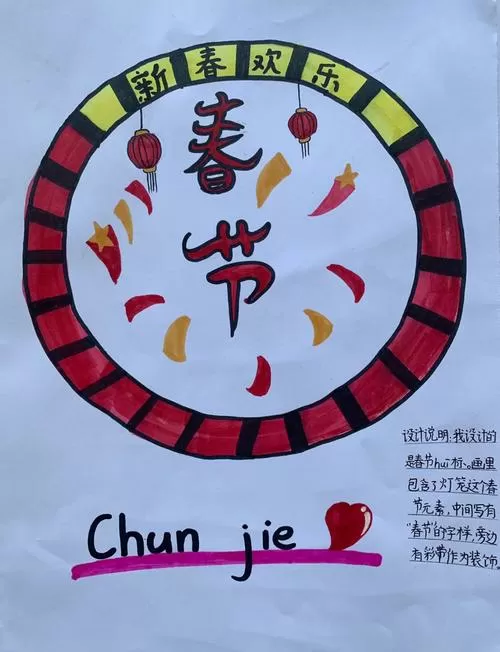 新春欢乐
春
节
设计说明:我设计的
是春节hui标。画里
包含了灯笼这个春
节元素,中间写有
"春节"的字样,旁边
有彩带作为装饰。
Chun jie